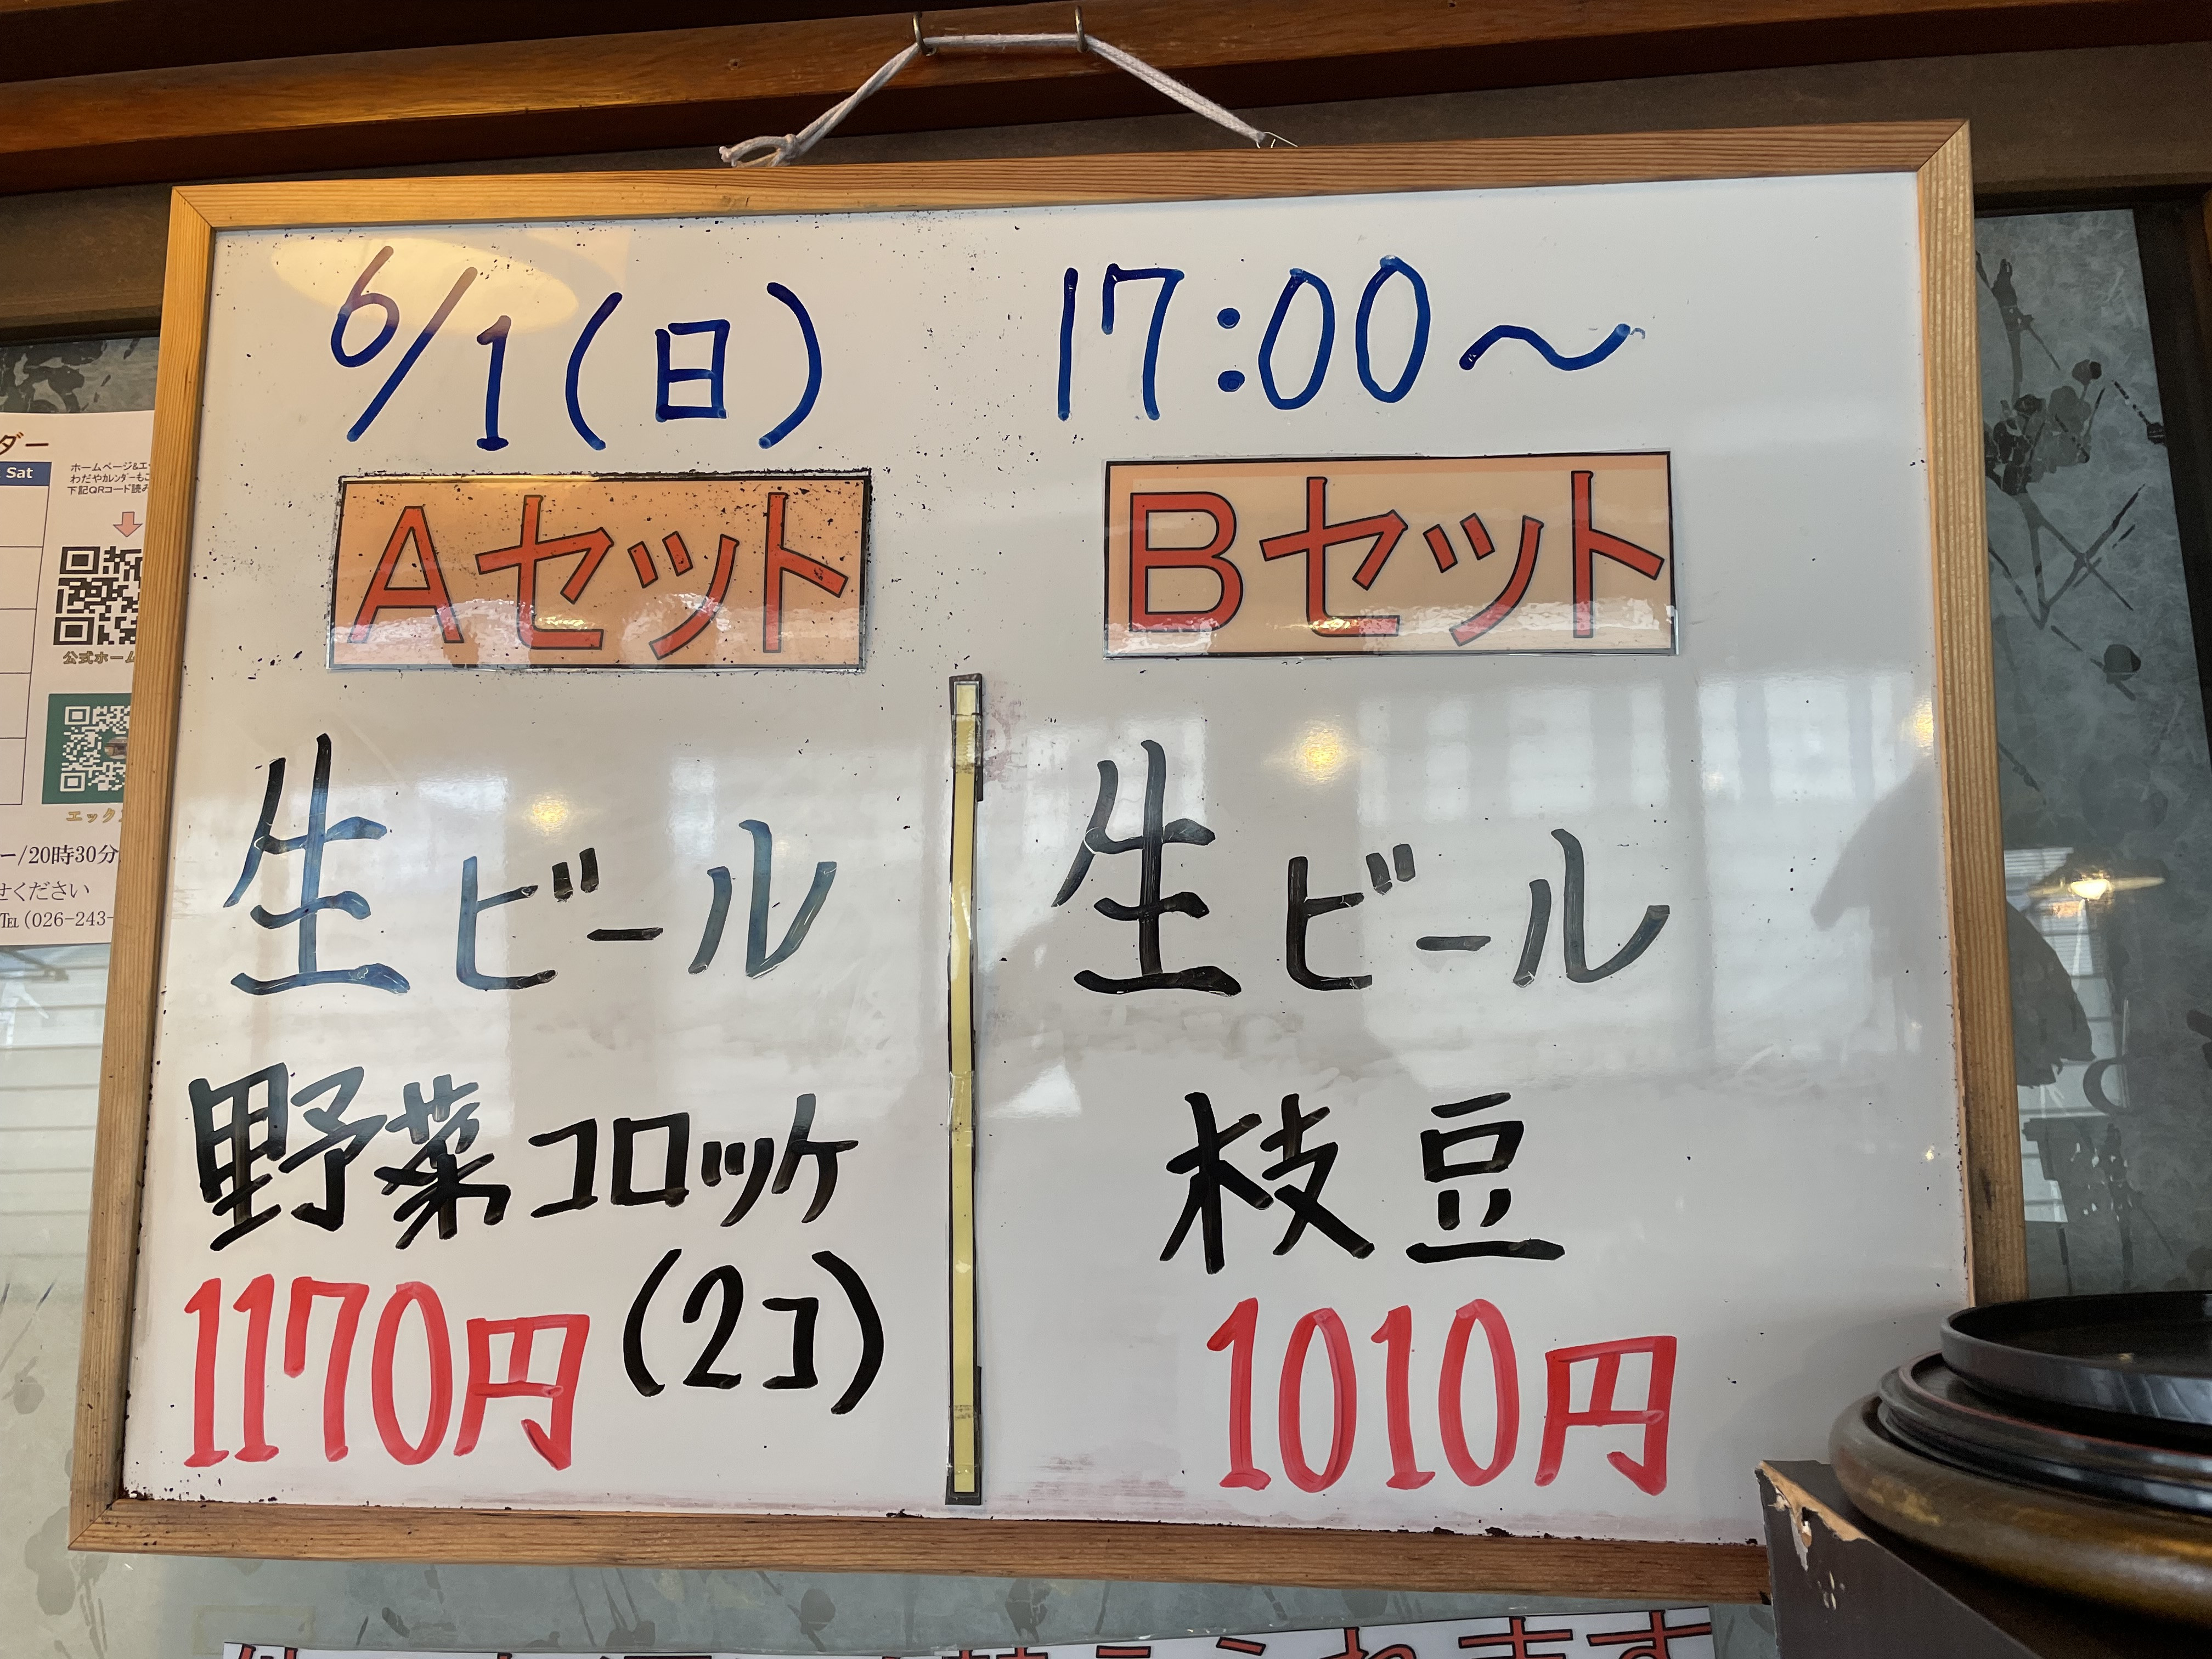 6/1(日) 17:00〜
Aセット
生ビール
野菜コロッケ
(2コ)
1170円
Bセット
生ビール
枝豆
1010円
ダー
Sat
ホームページ&エ
わだやカレンダーもこ
下記QRコード読み
公式ホーム
エックス
ー/20時30分
せください
℡(026-243-